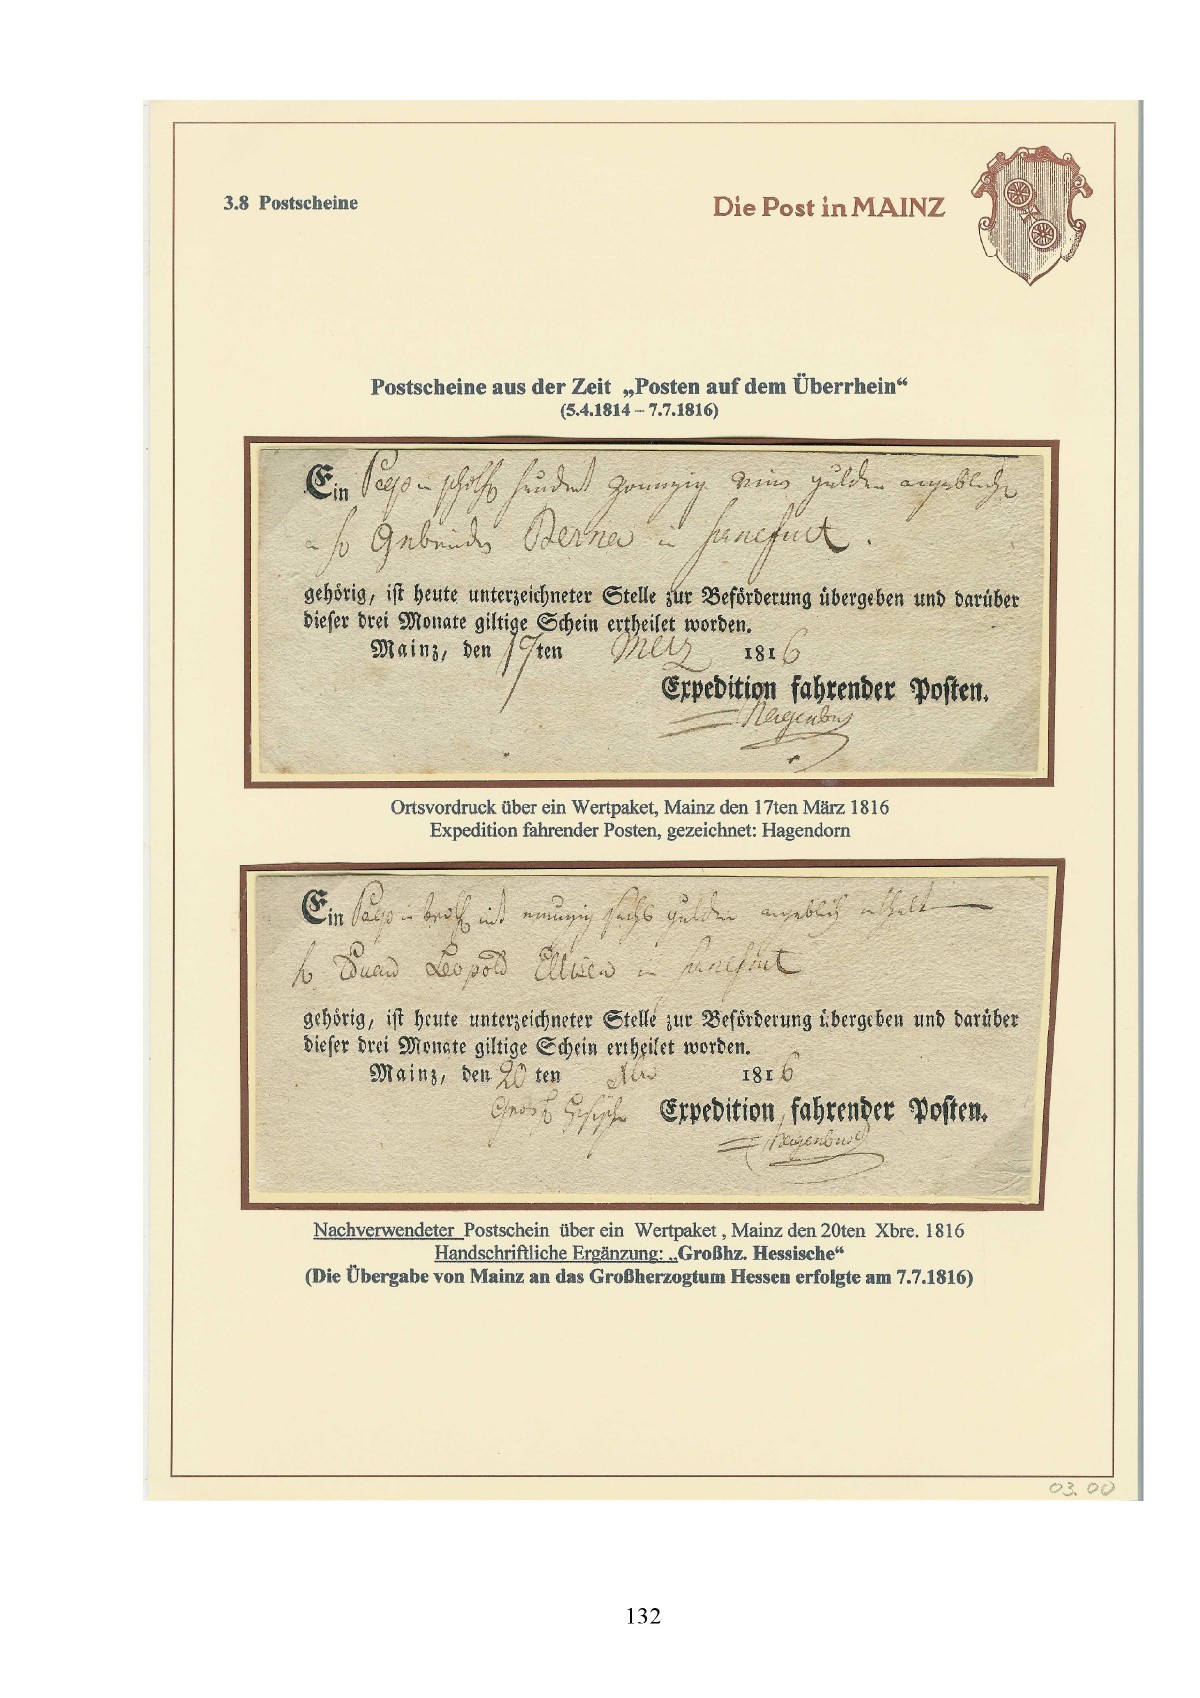 3.8 Postscheine
Die Post in MAINZ
Postscheine aus der Zeit „Posten auf dem Überrhein“
(5.4.1814 – 7.7.1816)
Ein hundert zwanzig gulden
Gebrüder in
gehörig, ist heute unterzeichneter Stelle zur Beförderung übergeben und darüber
dieser drei Monate giltige Schein ertheilet worden.
Mainz, den 17ten Merz 1816
Expedition fahrender Posten.
Ortsvordruck über ein Wertpaket, Mainz den 17ten März 1816
Expedition fahrender Posten, gezeichnet: Hagendorn
Ein mit neunzig sechs gulden angeblich
Eduard Leopold in
gehörig, ist heute unterzeichneter Stelle zur Beförderung übergeben und darüber
dieser drei Monate giltige Schein ertheilet worden.
Mainz, den 20 ten 1816
Expedition fahrender Posten.
Nachverwendeter Postschein über ein Wertpaket , Mainz den 20ten Xbre. 1816
Handschriftliche Ergänzung: „Großhz. Hessische“
(Die Übergabe von Mainz an das Großherzogtum Hessen erfolgte am 7.7.1816)
03.00
132